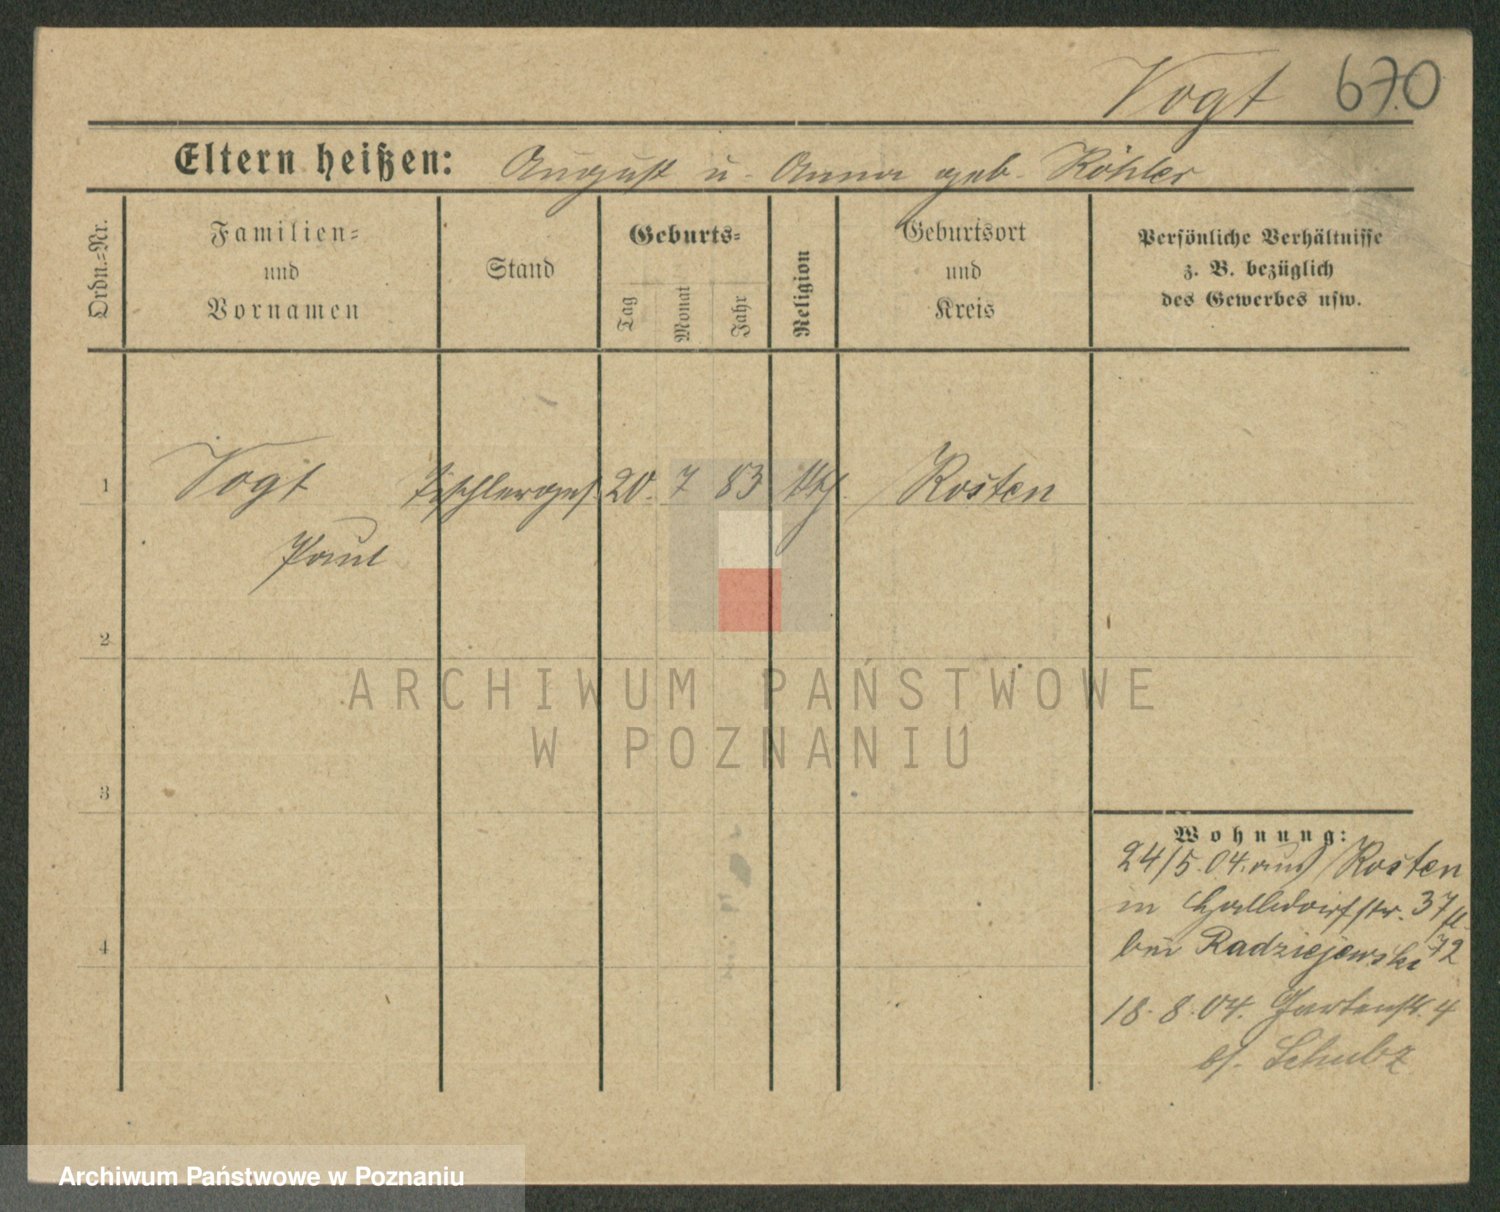 Vogt 670
Eltern heißen: August u. Anna geb. Köhler
Ordn.-Nr.
Familien-
und
Vornamen
Stand
Geburts-
Tag
Monat
Jahr
Religion
Geburtsort
und
Kreis
Persönliche Verhältnisse
z. B. bezüglich
des Gewerbes usw.
1 Vogt Tischlerges. 20. 7 83 Kosten
Paul
2
3
4
Wohnung:
24/5.04. aus Kosten
in 37
bei Radziejewski 72
18.8.04. Gartenstr. 4
b/. Schulz
ARCHIWUM PAŃSTWOWE
W POZNANIU
Archiwum Państwowe w Poznaniu